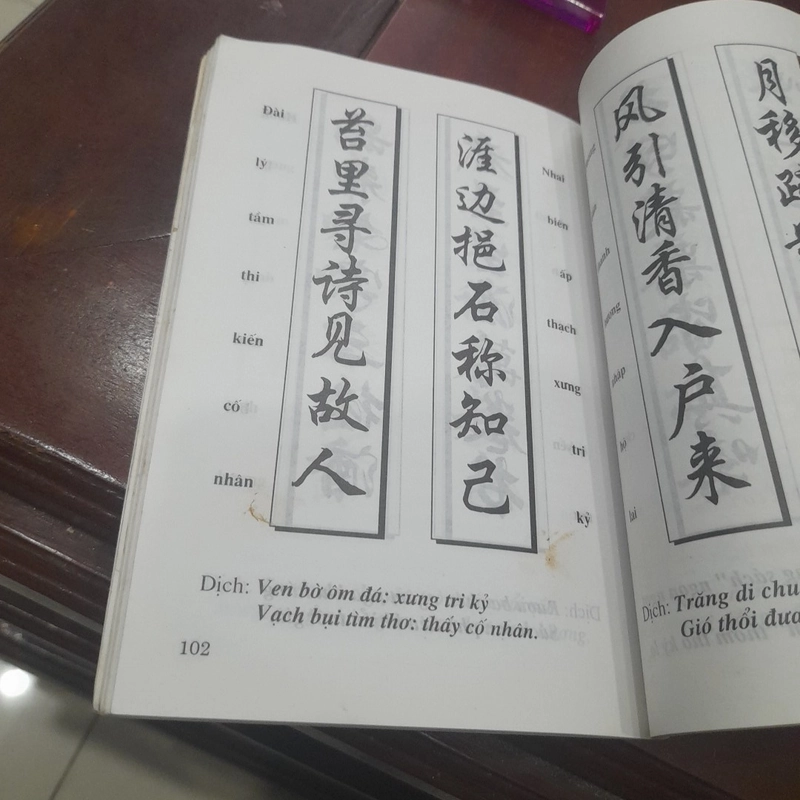 Đài
lý
tầm
thi
kiến
cố
nhân
苔里寻诗见故人
涯边挹石称知己
Nhai
biên
áp
thạch
xưng
tri
kỷ
Dịch: Ven bờ ôm đá: xưng tri kỷ
Vạch bụi tìm thơ: thấy cố nhân.
102
风引清香入户来
月移
lai
Dịch: Trăng di chu
Gió thổi đưa